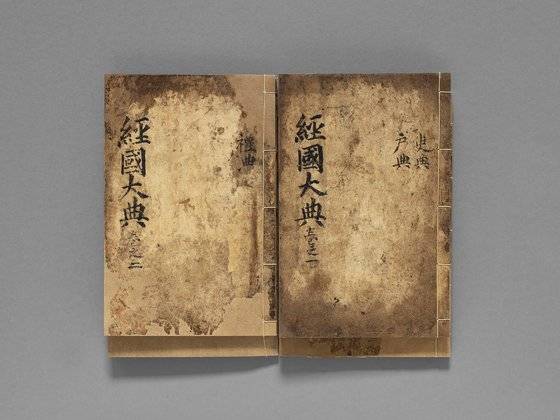 吏典
户典
經國大典 之一
禮典
經國大典 之二